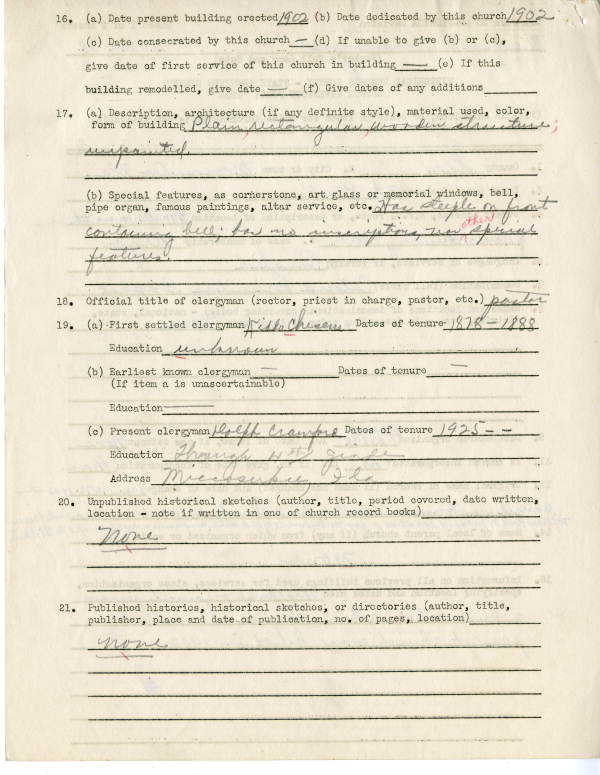 16. (a) Date present building erected 1902 (b) Date dedicated by this church 1902
(c) Date consecrated by this church — (d) If unable to give (b) or (c),
give date of first service of this church in building — (e) If this
building remodelled, give date — (f) Give dates of any additions
17. (a) Description, architecture (if any definite style), material used, color,
form of building Plain, rectangular, wooden structure;
unpainted.
(b) Special features, as cornerstone, art glass or memorial windows, bell,
pipe organ, famous paintings, altar service, etc. Has steeple on front
containing bell; has no inscriptions, nor other special
features.
18. Official title of clergyman (rector, priest in charge, pastor, etc.) pastor
19. (a) First settled clergyman Dates of tenure 1878 - 1888
Education unknown
(b) Earliest known clergyman — Dates of tenure —
(If item a is unascertainable)
Education —
(c) Present clergyman Dolph Crawford Dates of tenure 1925 - -
Education Through 4th grade
Address Miccosukee, Fla
20. Unpublished historical sketches (author, title, period covered, date written,
location - note if written in one of church record books)
None
21. Published histories, historical sketches, or directories (author, title,
publisher, place and date of publication, no. of pages, location)
none